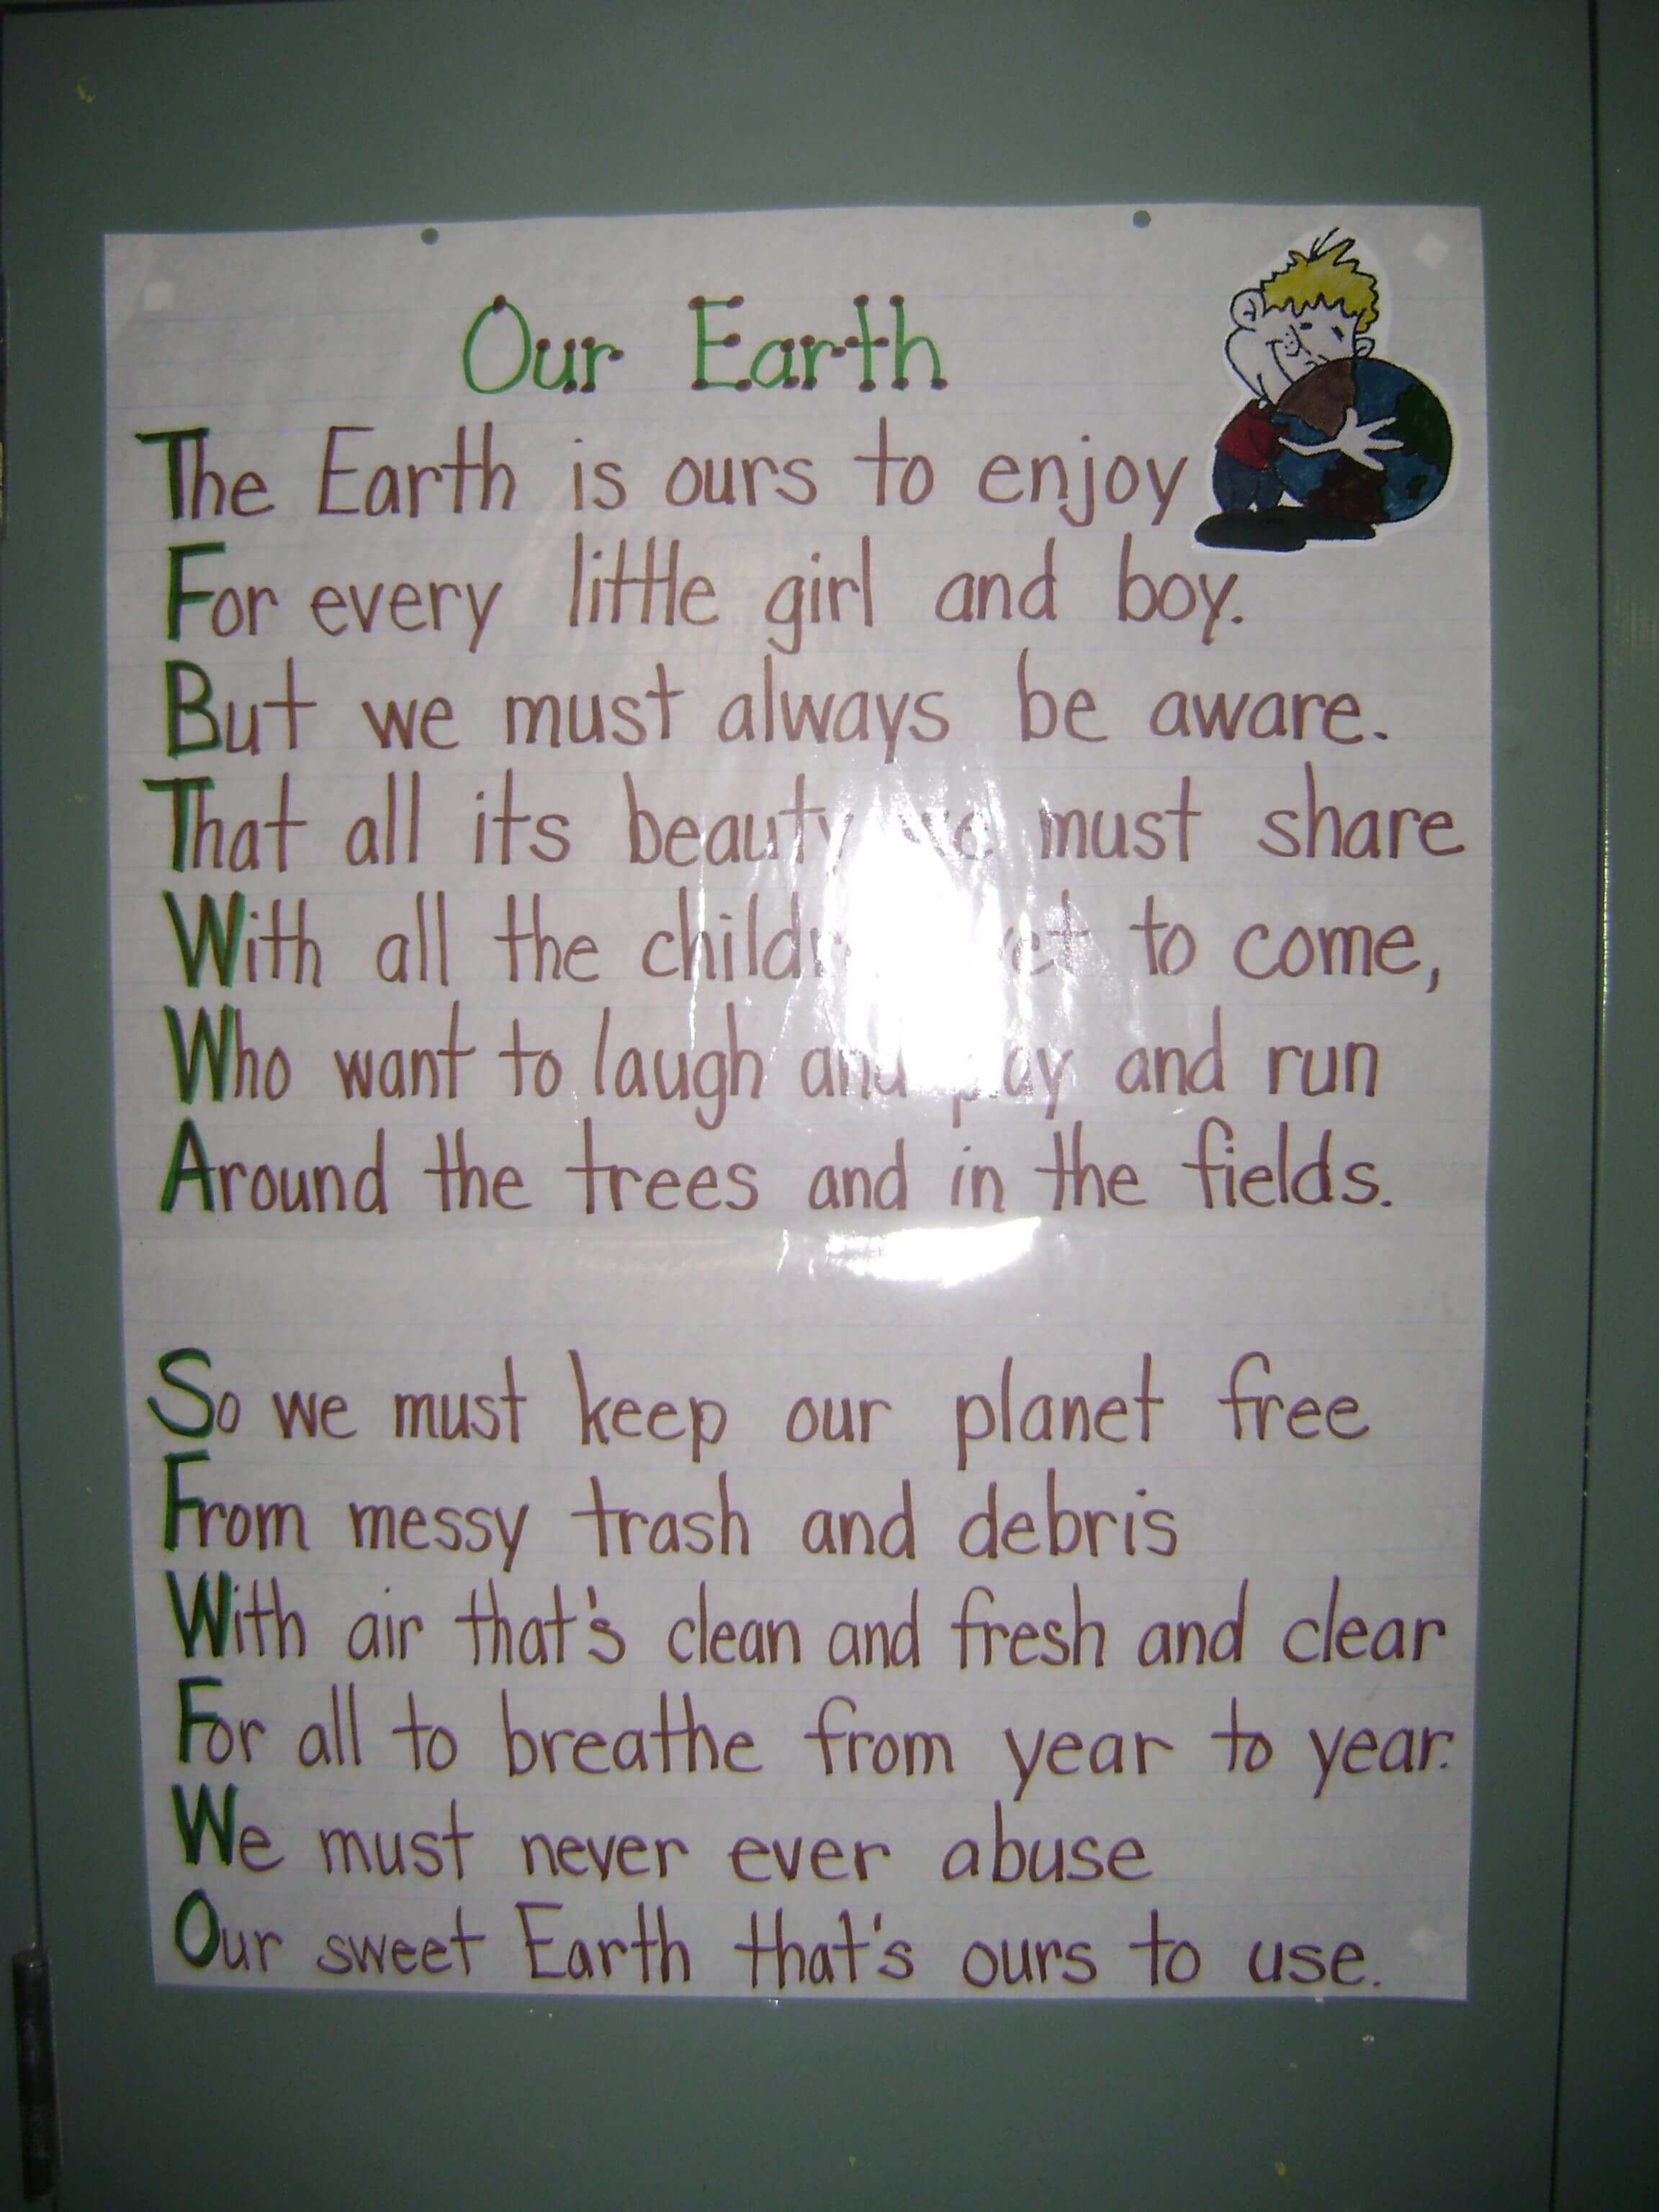 Our Earth
The Earth is ours to enjoy
For every little girl and boy.
But we must always be aware.
That all its beauty we must share
With all the children yet to come,
Who want to laugh and play and run
Around the trees and in the fields.
So we must keep our planet free
From messy trash and debris
With air that's clean and fresh and clear
For all to breathe from year to year.
We must never ever abuse
Our sweet Earth that's ours to use.